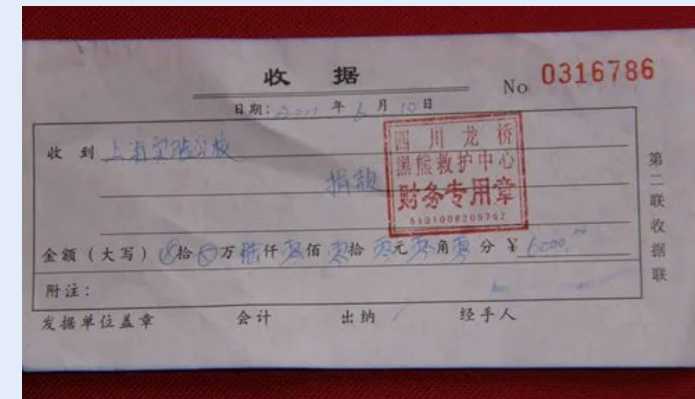 收据
No 0316786
日期: 2011 年 6 月 10 日
收到 上海实验学校
捐款
四川龙桥
黑熊救护中心
财务专用章
5101008209762
第二联收据联
金额（大写） ⊗拾⊗万陆仟零佰零拾零元零角零分 ¥ 6000.00
附注：
发据单位盖章 会计 出纳 经手人